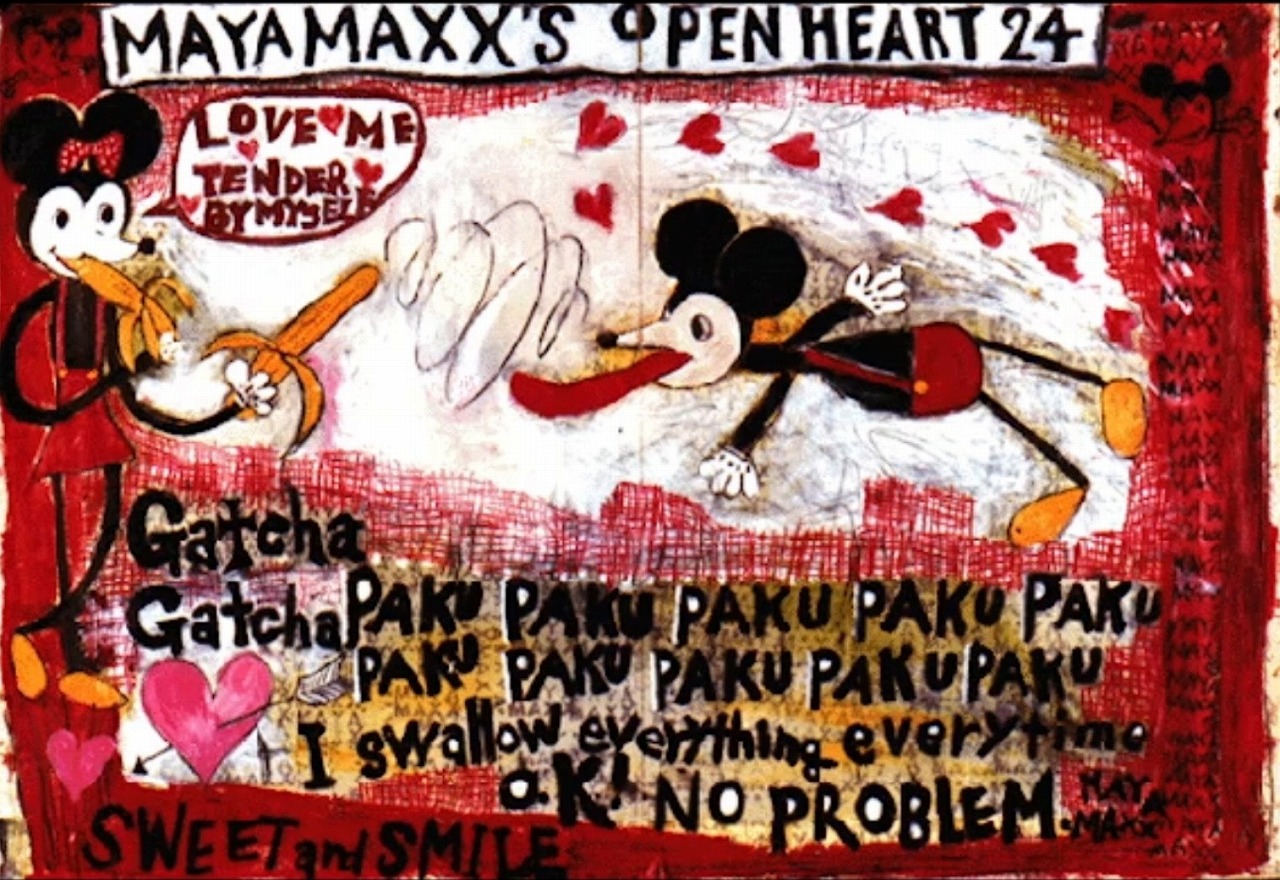 MAYA MAXX'S OPEN HEART 24
LOVE ME
TENDER
BY MYSELF
Gatcha
Gatcha PAKU PAKU PAKU PAKU PAKU
PAKU PAKU PAKU PAKU PAKU
I swallow everything everytime
O.K! NO PROBLEM.
MAYA
MAXX
SWEET and SMILE